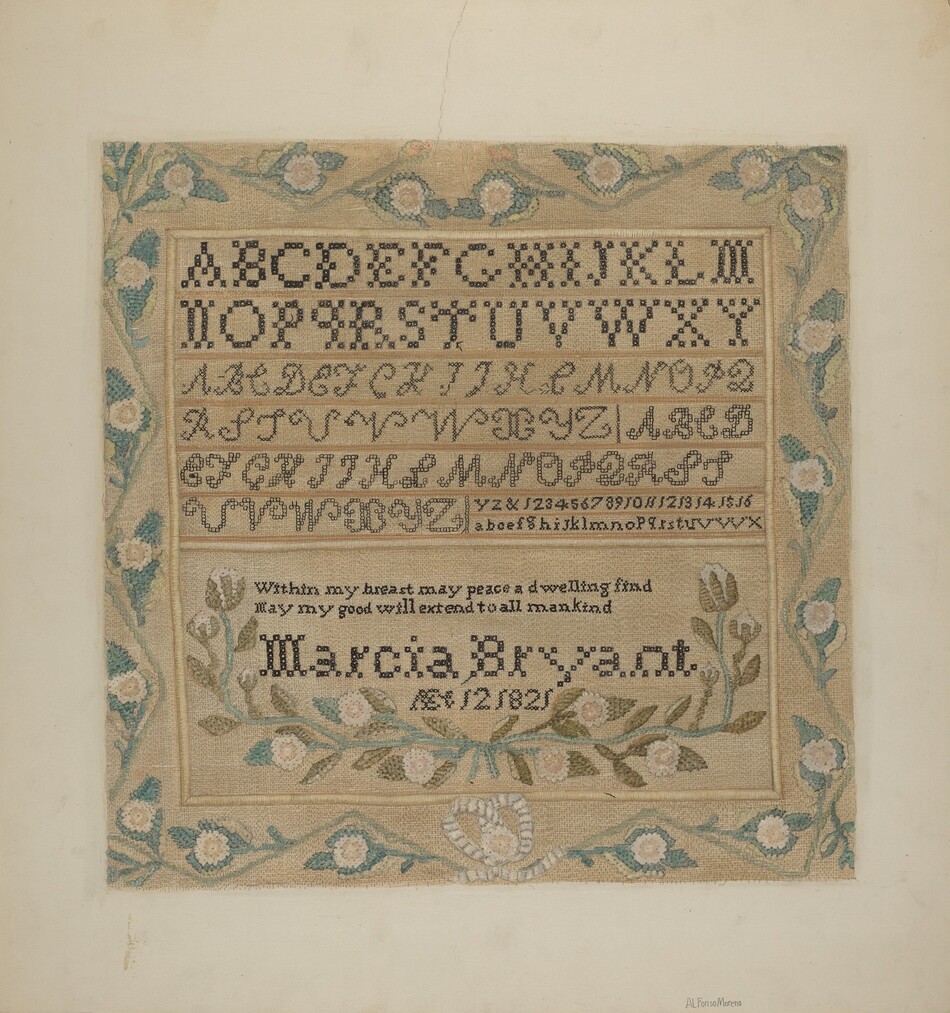 ABCDEFGHIJKLM
NOPqRSTUVWXY
ABCDEFGHIJKLMNOPQ
RSTUVWXYZ ABCD
EFGHIJKLMNOPQRST
UVWXYZ YZ&12345678910 11 12 13 14 15 16
abcefghijklmnoPqrstuvwx
Within my breast may peace a dwelling find
May my good will extend to all mankind
Marcia Bryant
Æt 12 1821
ALFonso Moreno